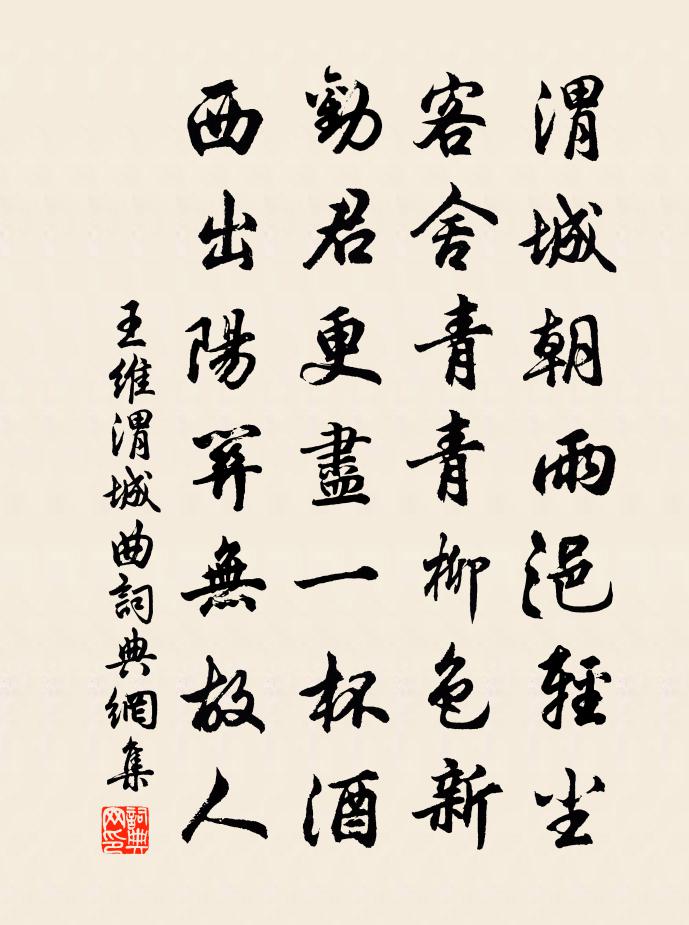 渭城朝雨浥輕塵
客舍青青柳色新
勸君更盡一杯酒
西出陽關無故人
王維渭城曲詞典網集
詞典网印